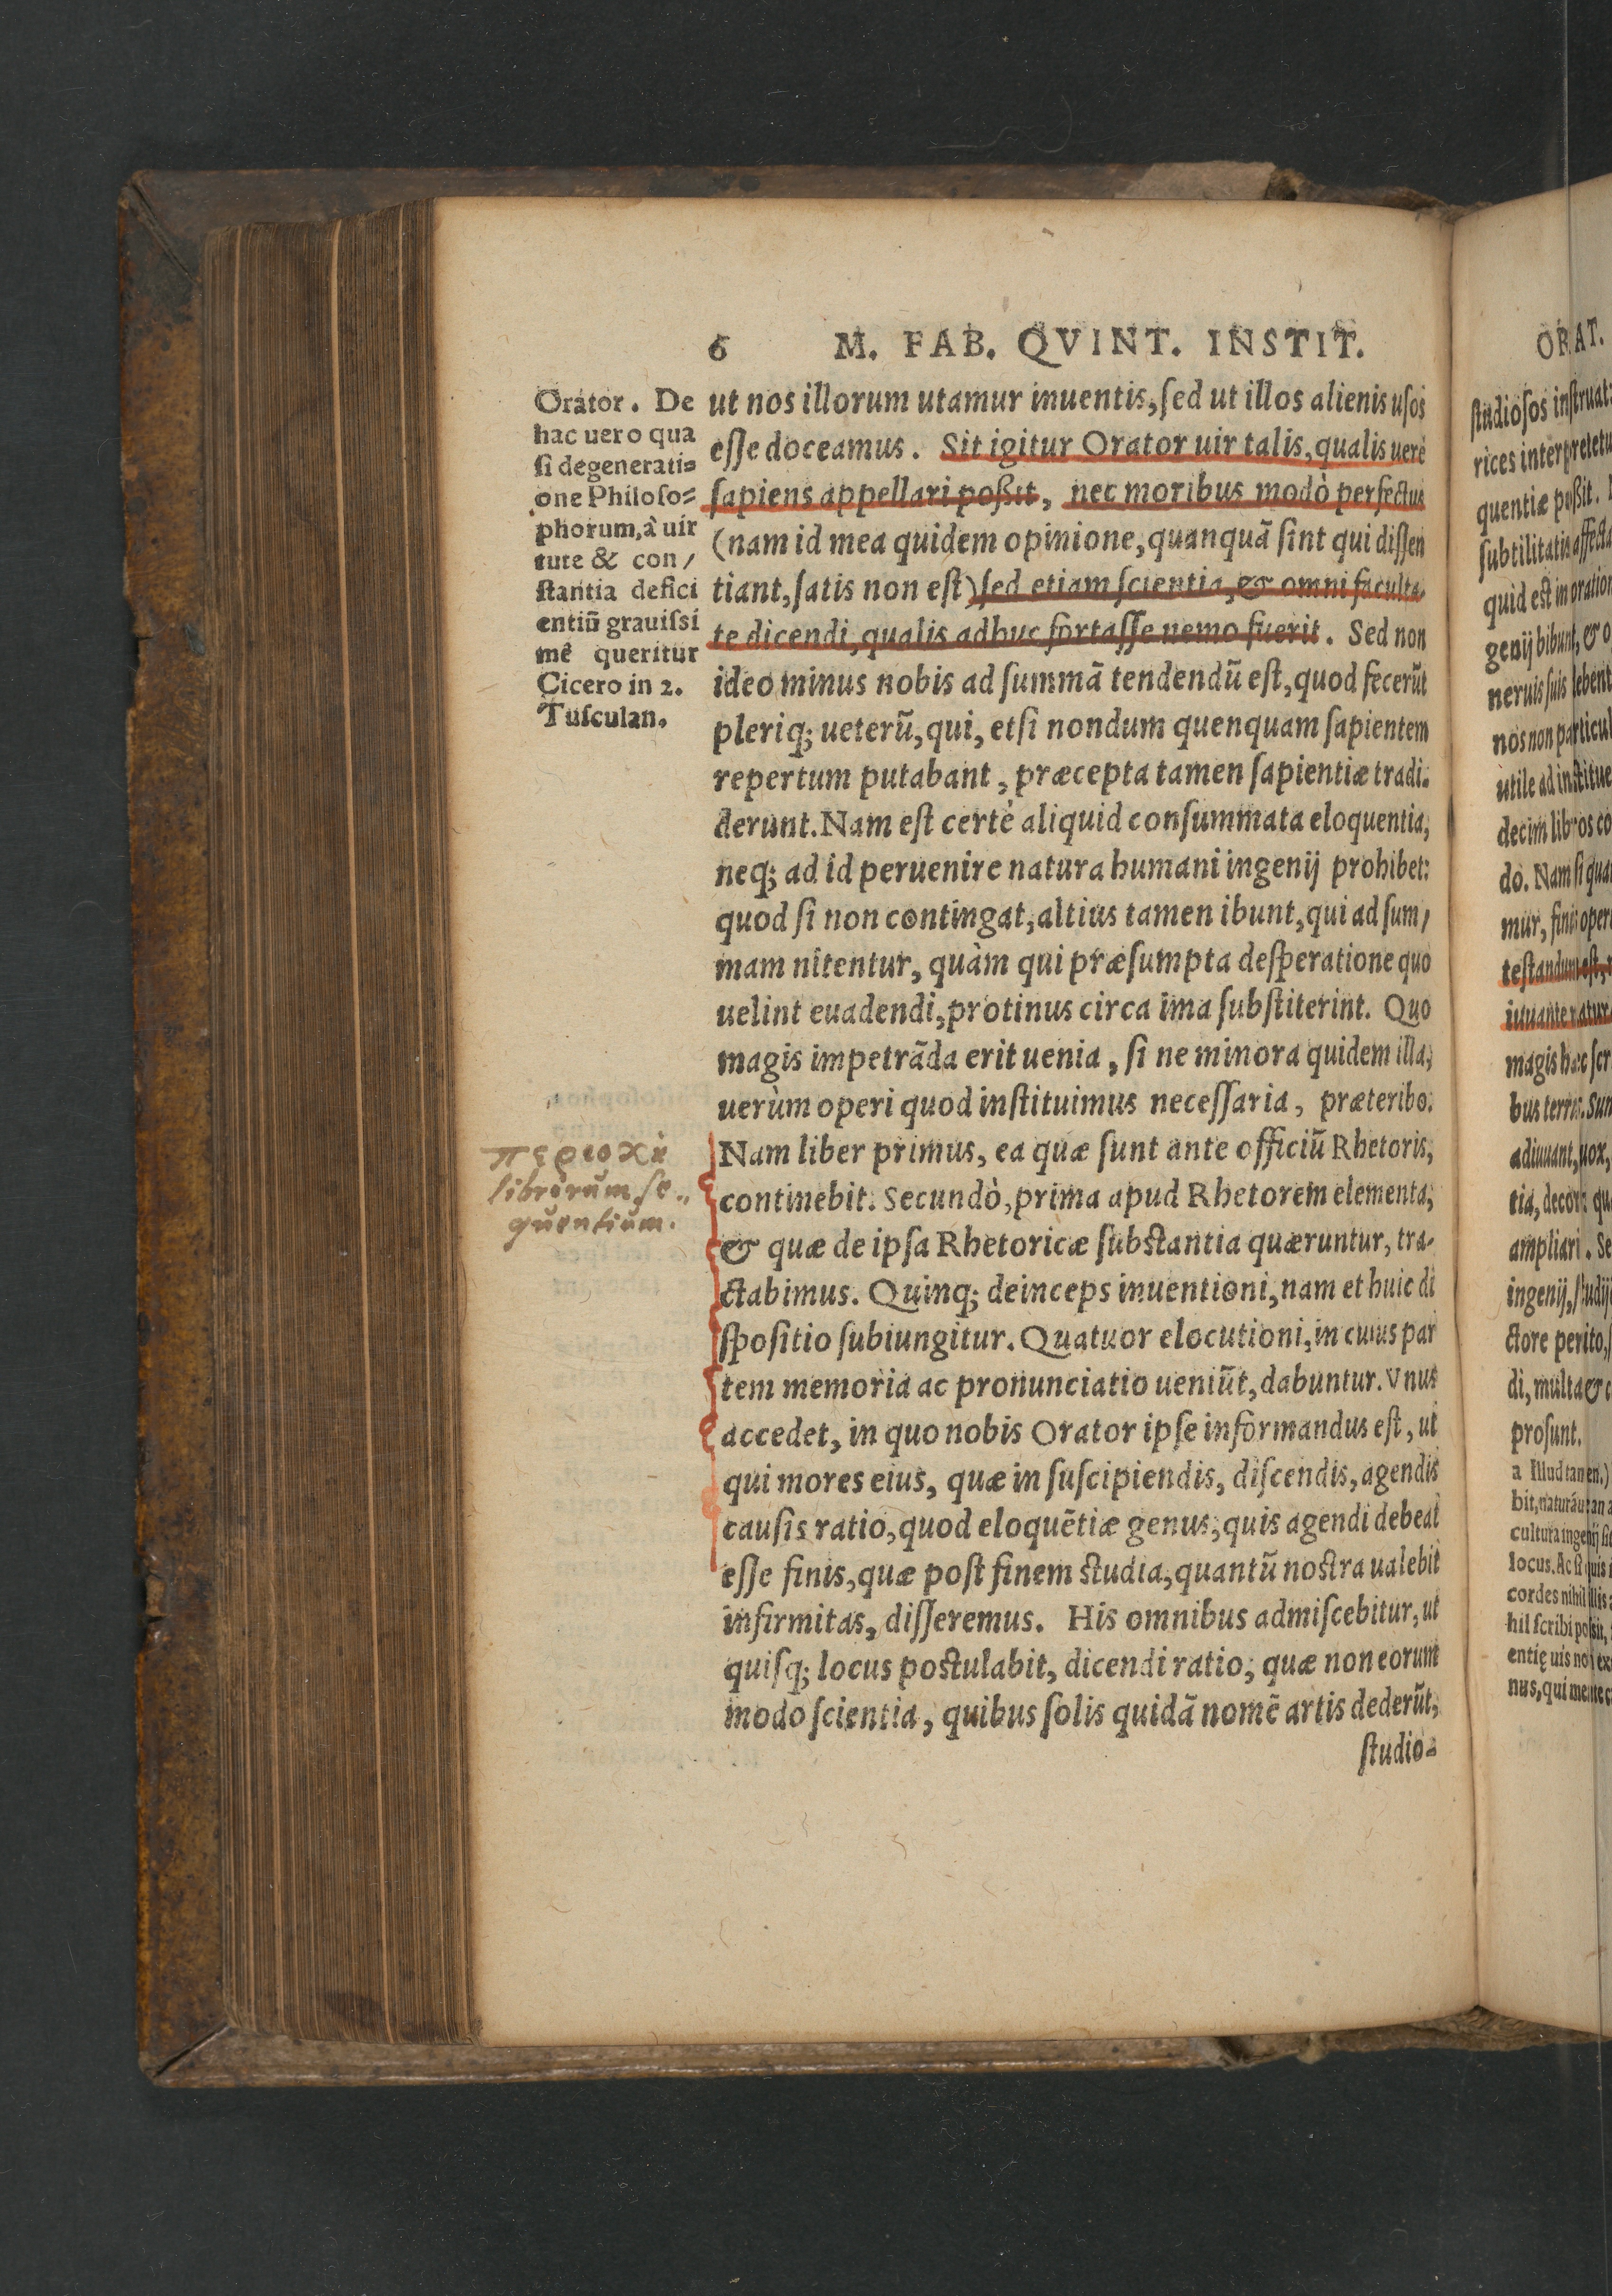 6 M. FAB. QVINT. INSTIT.
Orator. De
hac uero qua
ſi degenerati=
one Philoſo=
phorum, à uir
tute & con/
ſtantia defici
entiū grauiſſi
mê queritur
Cicero in 2.
Tuſculan.
ut nos illorum utamur inuentis, ſed ut illos alienis uſos
eſſe doceamus. Sit igitur Orator uir talis, qualis uerè
ſapiens appellari poßit, nec moribus modò perfectus
(nam id mea quidem opinione, quanquā ſint qui diſſen
tiant, ſatis non eſt) ſed etiam ſcientia, & omni faculta-
te dicendi, qualis adhuc fortaſſe nemo fuerit. Sed non
ideo minus nobis ad ſummā tendendū eſt, quod fecerūt
pleriq; ueterū, qui, etſi nondum quenquam ſapientem
repertum putabant, præcepta tamen ſapientiæ tradi-
derunt. Nam eſt certè aliquid conſummata eloquentia,
neq; ad id peruenire natura humani ingenij prohibet:
quod ſi non contingat, altius tamen ibunt, qui ad ſum/
mam nitentur, quàm qui præſumpta deſperatione quo
uelint euadendi, protinus circa ima ſubſtiterint. Quo
magis impetrāda erit uenia, ſi ne minora quidem illa,
uerùm operi quod inſtituimus neceſſaria, præteribo.
Nam liber primus, ea quæ ſunt ante officiū Rhetoris,
continebit. Secundò, prima apud Rhetorem elementa,
& quæ de ipſa Rhetoricæ ſubſtantia quæruntur, tra-
ctabimus. Quinq; deinceps inuentioni, nam et huic di
ſpoſitio ſubiungitur. Quatuor elocutioni, in cuius par
tem memoria ac pronunciatio ueniūt, dabuntur. Vnus
accedet, in quo nobis Orator ipſe informandus eſt, ut
qui mores eius, quæ in ſuſcipiendis, diſcendis, agendis
cauſis ratio, quod eloquētiæ genus, quis agendi debeat
eſſe finis, quæ poſt finem ſtudia, quantū noſtra ualebit
infirmitas, diſſeremus. His omnibus admiſcebitur, ut
quiſq; locus poſtulabit, dicendi ratio, quæ non eorum
modo ſcientia, quibus ſolis quidā nomē artis dederūt,
ſtudio=
περιοχὴ
librorum ſe..
quentium.
ORAT.
ſtudioſos inſtruat:
rices interpretetu
quentiæ poßit.
ſubtilitatis affecta
quid eſt in oration
genij bibunt, & o
neruis ſuis debent
nos non particul
utile ad inſtitue
decim libros co
do. Nam ſi qua
mur, finis oper
teſtandum eſt,
iuuante natur
magis hæc ſcr
bus terris. Sun
adiuuant, uox,
tia, decor: qu
ampliari. Se
ingenij, ſtudij
ctore perito, ſ
di, multa & c
proſunt.
a Illud tamen.)
bit, naturáue an a
cultura ingenij ſit
locus. Ac ſi quis
cordes nihil illis
hil ſcribi poſsit,
entię uis no ex
nus, qui mente